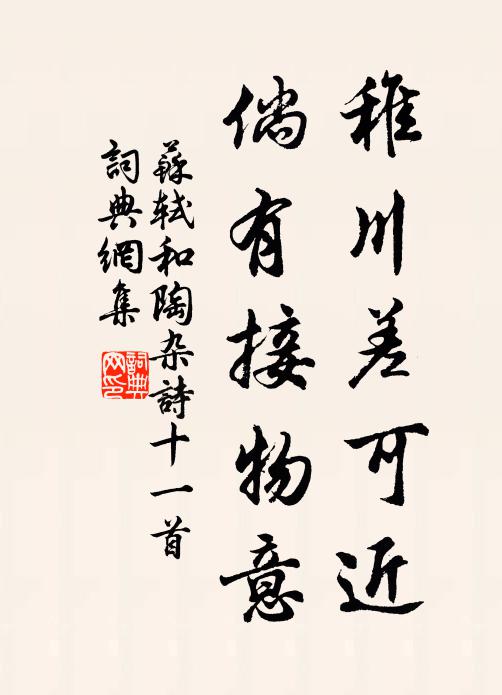 稚川差可近
倘有接物意
蘇軾和陶杂詩十一首
詞典網集
詞典网印